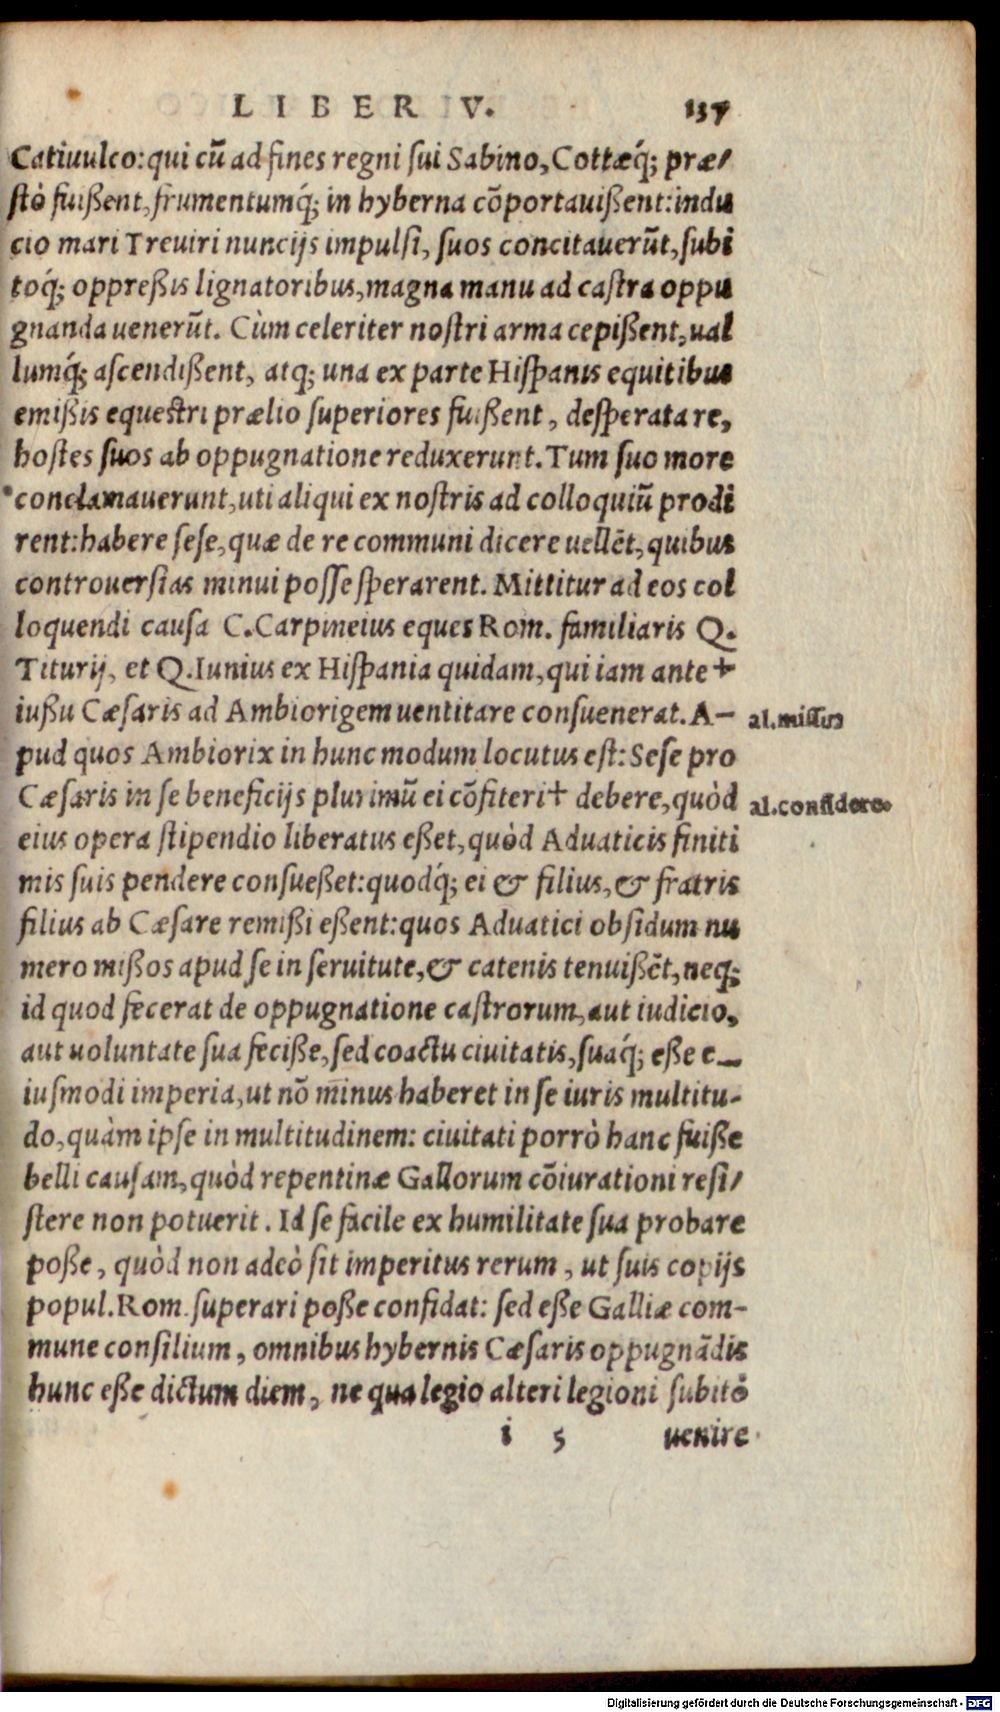 LIBER V. 137
Catiuulco: qui cū ad fines regni sui Sabino, Cottæq́; præ/
stò fuißent, frumentumq́; in hyberna cōportauißent: indu
cio mari Treuiri nuncijs impulsi, suos concitauerūt, subi
toq́; oppreßis lignatoribus, magna manu ad castra oppu
gnanda uenerūt. Cùm celeriter nostri arma cepißent, ual
lumq́; ascendißent, atq; una ex parte Hispanis equitibus
emißis equestri prælio superiores fuißent, desperata re,
hostes suos ab oppugnatione reduxerunt. Tum suo more
conclamauerunt, uti aliqui ex nostris ad colloquiū prodi
rent: habere sese, quæ de re communi dicere uellēt, quibus
controuersias minui posse sperarent. Mittitur ad eos col
loquendi causa C. Carpineius eques Rom. familiaris Q.
Titurij, et Q. Iunius ex Hispania quidam, qui iam ante+
iußu Cæsaris ad Ambiorigem uentitare consuenerat. A- al. missus
pud quos Ambiorix in hunc modum locutus est: Sese pro
Cæsaris in se beneficijs plurimū ei cōfiteri+ debere, quòd al. confidere.
eius opera stipendio liberatus eßet, quòd Aduaticis finiti
mis suis pendere consueßet: quodq́; ei & filius, & fratris
filius ab Cæsare remißi eßent: quos Aduatici obsidum nu
mero mißos apud se in seruitute, & catenis tenuißēt, neq;
id quod fecerat de oppugnatione castrorum, aut iudicio,
aut uoluntate sua feciße, sed coactu ciuitatis, suaq́; eße e-
iusmodi imperia, ut nō minus haberet in se iuris multitu-
do, quàm ipse in multitudinem: ciuitati porrò hanc fuiße
belli causam, quòd repentinæ Gallorum cōiurationi resi/
stere non potuerit. Id se facile ex humilitate sua probare
poße, quòd non adeò sit imperitus rerum, ut suis copijs
popul. Rom. superari poße confidat: sed eße Galliæ com-
mune consilium, omnibus hybernis Cæsaris oppugnādis
hunc eße dictum diem, ne qua legio alteri legioni subitò
i 5 uenire
Digitalisierung gefördert durch die Deutsche Forschungsgemeinschaft - DFG